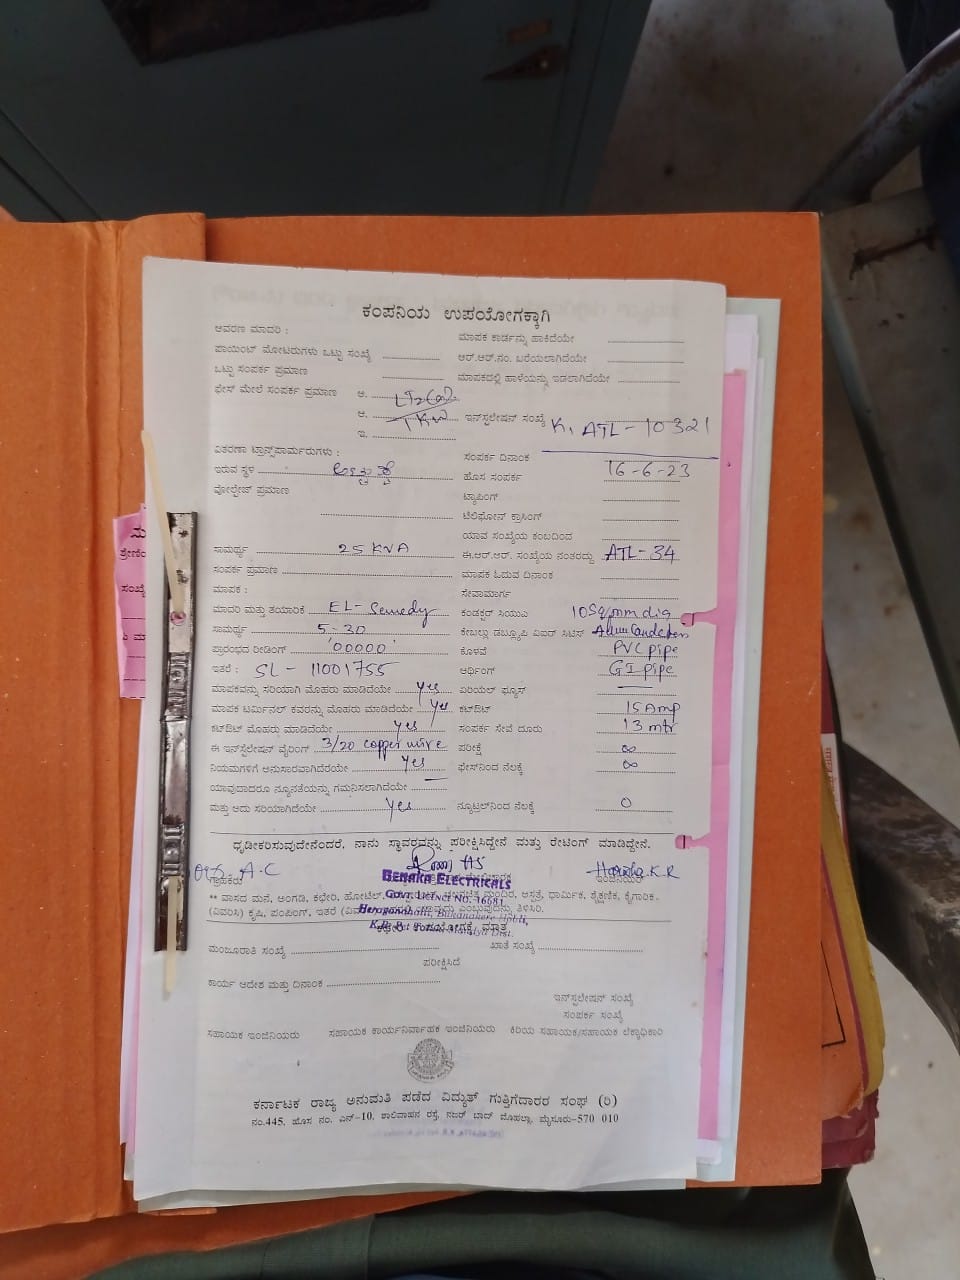 ಕಂಪನಿಯ ಉಪಯೋಗಕ್ಕಾಗಿ
ಆವರಣ ಮಾದರಿ :
ಮಾಪಕ ಕಾರ್ಡನ್ನು ಹಾಕಿದೆಯೇ
ಪಾಯಿಂಟ್ ಮೋಟರುಗಳು ಒಟ್ಟು ಸಂಖ್ಯೆ
ಆರ್.ಆರ್.ನಂ. ಬರೆಯಲಾಗಿದೆಯೇ
ಒಟ್ಟು ಸಂಪರ್ಕ ಪ್ರಮಾಣ
ಮಾಪಕದಲ್ಲಿ ಹಾಳೆಯನ್ನು ಇಡಲಾಗಿದೆಯೇ
ಫೇಸ್ ಮೇಲೆ ಸಂಪರ್ಕ ಪ್ರಮಾಣ ಅ.
ಆ. 1 KW ಇನ್‌ಸ್ಟಲೇಷನ್ ಸಂಖ್ಯೆ K, ATL-10321
ಇ.
ವಿತರಣಾ ಟ್ರಾನ್ಸ್‌ಫಾರ್ಮರುಗಳು :
ಸಂಪರ್ಕ ದಿನಾಂಕ
ಇರುವ ಸ್ಥಳ
ಹೊಸ ಸಂಪರ್ಕ 16-6-23
ವೋಲ್ಟೇಜ್ ಪ್ರಮಾಣ
ಟ್ಯಾಪಿಂಗ್
ಟೆಲಿಫೋನ್ ಕ್ರಾಸಿಂಗ್
ಯಾವ ಸಂಖ್ಯೆಯ ಕಂಬದಿಂದ
ಸಾಮರ್ಥ್ಯ 25 KVA
ಈ.ಆರ್.ಆರ್. ಸಂಖ್ಯೆಯ ನಂತರದ್ದು ATL-34
ಸಂಪರ್ಕ ಪ್ರಮಾಣ
ಮಾಪಕ ಓದುವ ದಿನಾಂಕ
ಮಾಪಕ :
ಸೇವಾಮಾರ್ಗ
ಮಾದರಿ ಮತ್ತು ತಯಾರಿಕೆ EL-
ಕಂಡಕ್ಟರ್ ಸಿಯುಎ 10 Sq/mm dia
ಸಾಮರ್ಥ್ಯ 5-30
ಕೇಬಲ್ಲು ಡಬ್ಲ್ಯೂಪಿ ವಿಐರ್
ಪ್ರಾರಂಭದ ರೀಡಿಂಗ್ '00000'
ಕೊಳವೆ PVC pipe
ಇತರೆ : SL - 11001755
ಅರ್ಥಿಂಗ್ GI pipe
ಮಾಪಕವನ್ನು ಸರಿಯಾಗಿ ಮೊಹರು ಮಾಡಿದೆಯೇ yes
ಏರಿಯಲ್ ಫ್ಯೂಸ್
ಮಾಪಕ ಟರ್ಮಿನಲ್ ಕವರನ್ನು ಮೊಹರು ಮಾಡಿದೆಯೇ yes
ಕಟ್‌ಔಟ್ 15 Amp
ಕಟ್‌ಔಟ್ ಮೊಹರು ಮಾಡಿದೆಯೇ yes
ಸಂಪರ್ಕ ಸೇವೆ ದೂರು 13 mtr
ಈ ಇನ್‌ಸ್ಟಲೇಷನ್ ವೈರಿಂಗ್ 3/20 copper wire
ಪರೀಕ್ಷೆ ∞
ನಿಯಮಗಳಿಗೆ ಅನುಸಾರವಾಗಿದೆರಯೇ yes
ಫೇಸ್‌ನಿಂದ ನೆಲಕ್ಕೆ ∞
ಯಾವುದಾದರೂ ನ್ಯೂನತೆಯನ್ನು ಗಮನಿಸಲಾಗಿದೆಯೇ
ಮತ್ತು ಅದು ಸರಿಯಾಗಿದೆಯೇ yes
ನ್ಯೂಟ್ರಲ್‌ನಿಂದ ನೆಲಕ್ಕೆ 0
ಧೃಡೀಕರಿಸುವುದೇನೆಂದರೆ, ನಾನು ಸ್ಥಾವರವನ್ನು ಪರೀಕ್ಷಿಸಿದ್ದೇನೆ ಮತ್ತು ರೇಟಿಂಗ್ ಮಾಡಿದ್ದೇನೆ.
ಗ್ರಾಹಕರು
ಇಂಜಿನಿಯರ್
BENAKA ELECTRICALS
GOVT. LICENCE NO. 16681
** ವಾಸದ ಮನೆ, ಅಂಗಡಿ, ಕಛೇರಿ, ಹೋಟೆಲ್, ಮಂದಿರ, ಆಸ್ಪತ್ರೆ, ಧಾರ್ಮಿಕ, ಶೈಕ್ಷಣಿಕ, ಕೈಗಾರಿಕ,
(ವಿವರಿಸಿ) ಕೃಷಿ, ಪಂಪಿಂಗ್, ಇತರೆ ಎಂಬುವುದನ್ನು ತಿಳಿಸಿರಿ.
ಮಂಜೂರಾತಿ ಸಂಖ್ಯೆ
ಖಾತೆ ಸಂಖ್ಯೆ
ಪರೀಕ್ಷಿಸಿದೆ
ಕಾರ್ಯ ಆದೇಶ ಮತ್ತು ದಿನಾಂಕ
ಇನ್‌ಸ್ಟಲೇಷನ್ ಸಂಖ್ಯೆ
ಸಂಪರ್ಕ ಸಂಖ್ಯೆ
ಸಹಾಯಕ ಇಂಜಿನಿಯರು ಸಹಾಯಕ ಕಾರ್ಯನಿರ್ವಾಹಕ ಇಂಜಿನಿಯರು ಕಿರಿಯ ಸಹಾಯಕ/ಸಹಾಯಕ ಲೆಕ್ಕಾಧಿಕಾರಿ
ಕರ್ನಾಟಕ ರಾಜ್ಯ ಅನುಮತಿ ಪಡೆದ ವಿದ್ಯುತ್ ಗುತ್ತಿಗೆದಾರರ ಸಂಘ (ರಿ)
ನಂ.445, ಹೊಸ ನಂ. ಎನ್-10, ಶಾಲಿವಾಹನ ರಸ್ತೆ, ನಜರ್ ಬಾದ್ ಮೊಹಲ್ಲಾ, ಮೈಸೂರು-570 010